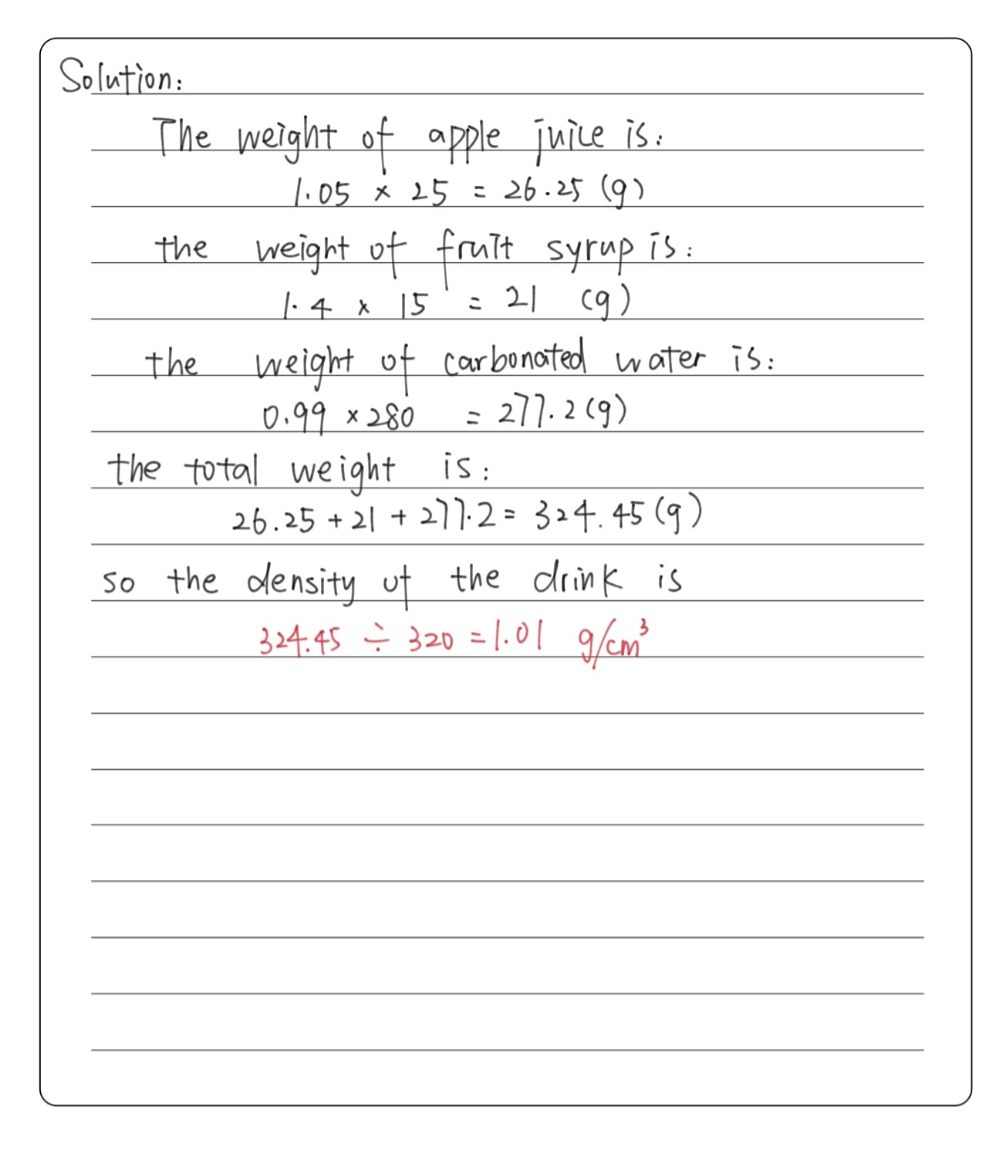 Solution:
The weight of apple juice is:
1.05 × 25 = 26.25 (g)
the weight of fruit syrup is:
1.4 × 15 = 21 (g)
the weight of carbonated water is:
0.99 × 280 = 277.2 (g)
the total weight is:
26.25 + 21 + 277.2 = 324.45 (g)
so the density of the drink is
324.45 ÷ 320 = 1.01 g/cm³